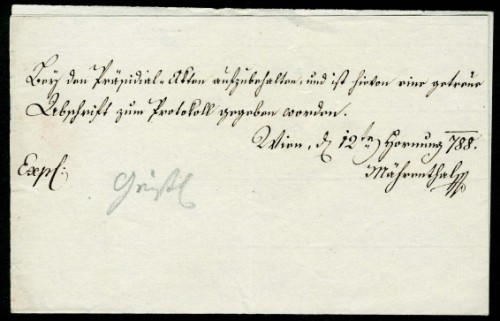 Beÿ den Präsidial-Akten aufzubehalten, und ist hievon eine getreue
Abschrift zum Protokoll gegeben worden.
Wien, d. 12ten Hornung 788.
Mährenthal
Exp: